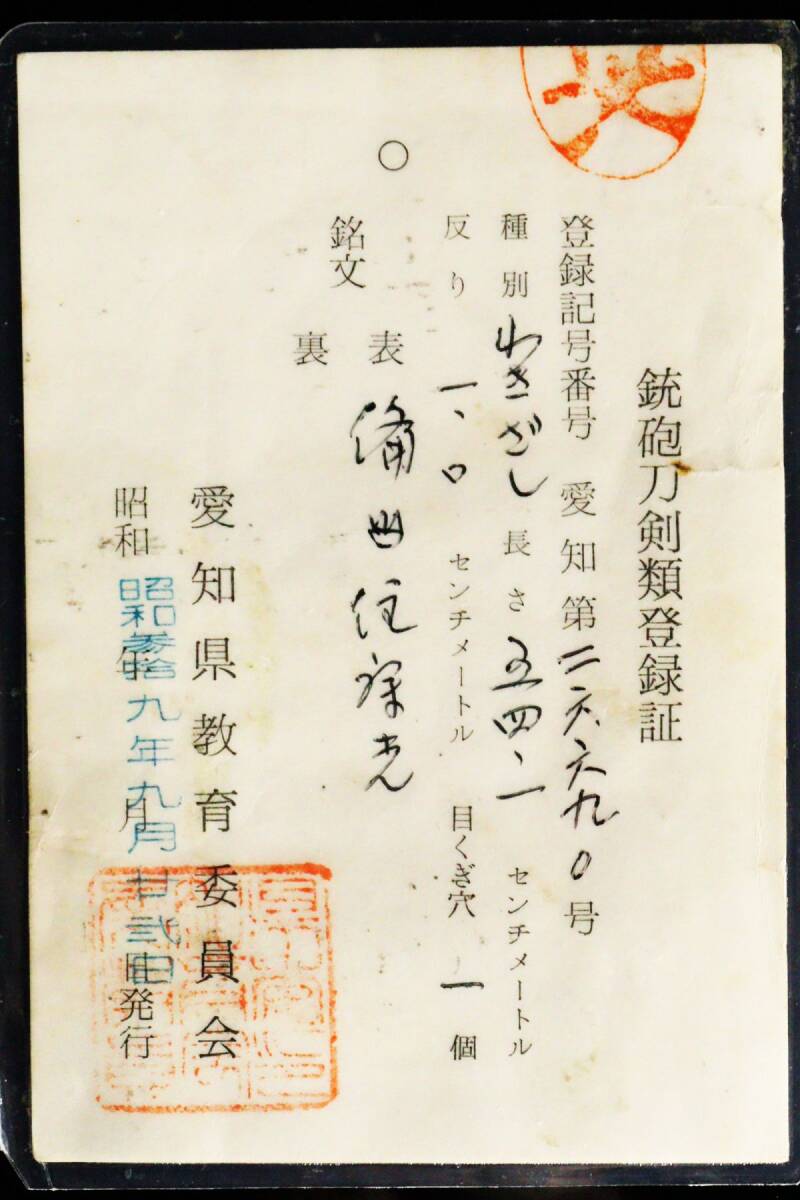 銃砲刀剣類登録証
登録記号番号 愛知第二六六九0号
種別 わきざし 長さ 五四、一 センチメートル
反り 一、0 センチメートル 目くぎ穴 一 個
銘文 表 備州住 光
裏
愛知県教育委員会
昭和 年 月 日発行
昭和参拾九年九月廿弐日